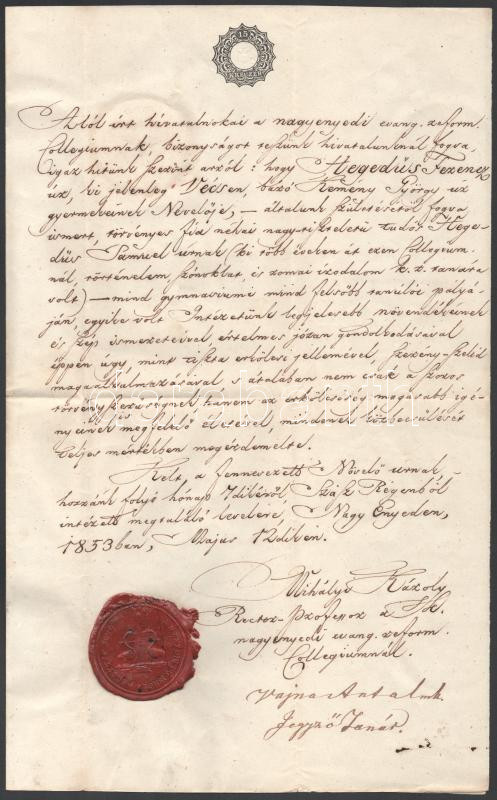 15
KREUZER
Alól írt hivatalnokai a nagyenyedi evang. reform.
Collegiumnak, bizonyságot teszünk hivatalunknál fogva,
igaz hitünk szerint arról: hogy Hegedüs Ferencz
úr, ki jelenleg Vécsen, báró Kemény György úr
gyermekeinek Nevelője, – általunk születésétől fogva
ismert, törvényes fia néhai nagytiszteletű tudós Hege-
düs Samuel úrnak (ki több éveken át ezen Collegium-
nál, történelem, szónoklat, és romai irodalom k. r. tanára
volt) – mind gymnasiumi mind felsőbb tanulói pályá-
ján, egyike volt Intézetünk legjelesebb növendékeinek
és szép ismereteivel, értelmes józan gondolkodásával
éppen úgy, mint tiszta erkölcsi jellemével, szerény-szelid
magaalkalmazásával, s átalában nem csak a szoros
törvényszerűségnek hanem az erkölcsiség magasabb igé-
nyeinek is megfelelő életével, mindenek közbecsülését
teljes mértékben megérdemelte.
Kelt, a fennevezett Nevelő úrnak
hozzánk folyó hónap 7dikéről, Szász Régenből
intézett megtaláló levelére, Nagy Enyeden,
1853ban, Majus 12diken.
Mihályi Károly
Rector-Professor a
nagyenyedi evang. reform.
Collegiumnál.
Vajna Antal mk.
Jegyző Tanár.